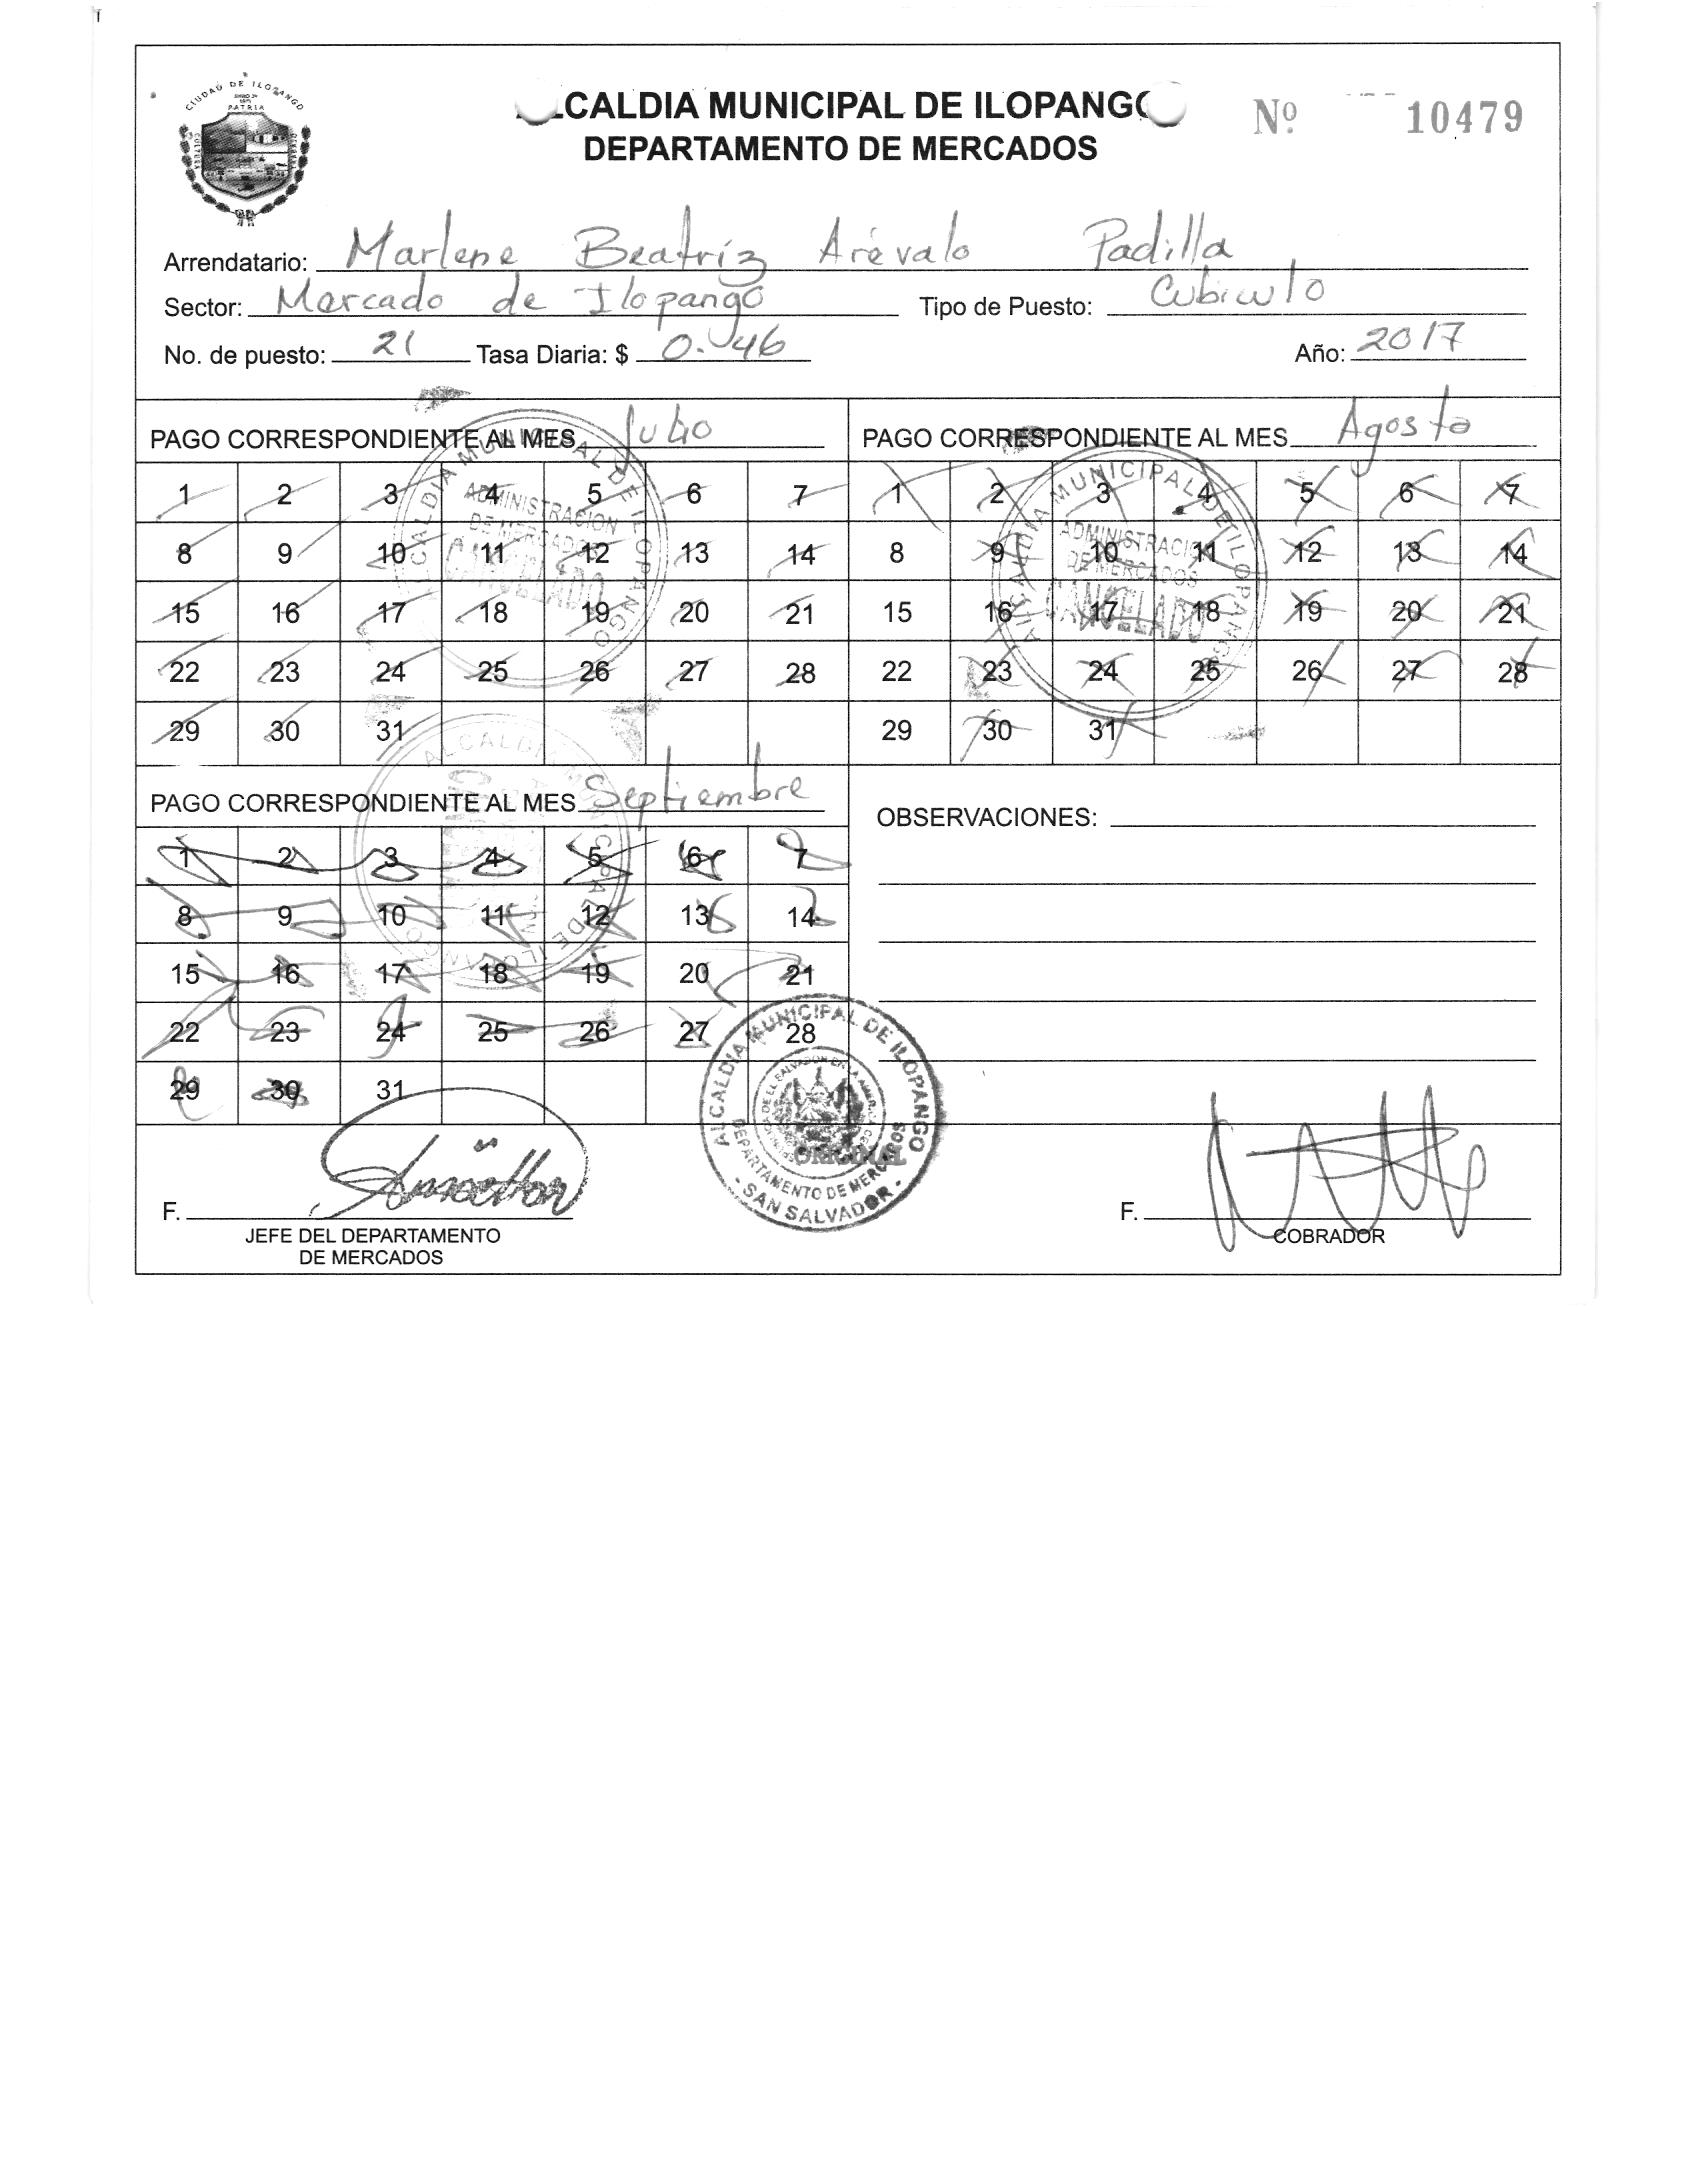 CIUDAD DE ILOPANGO
PATRIA
CULTURA
ALCALDIA MUNICIPAL DE ILOPANGO
DEPARTAMENTO DE MERCADOS
Nº 10479
Arrendatario: Marlene Beatríz Arévalo Padilla
Sector: Mercado de Ilopango Tipo de Puesto: Cubiculo
No. de puesto: 21 Tasa Diaria: $ 0.46 Año: 2017
PAGO CORRESPONDIENTE AL MES Julio
1 2 3 4 5 6 7
8 9 10 11 12 13 14
15 16 17 18 19 20 21
22 23 24 25 26 27 28
29 30 31
ALCALDIA MUNICIPAL DE ILOPANGO
ADMINISTRACION
DE MERCADOS
CANCELADO
PAGO CORRESPONDIENTE AL MES Agosto
1 2 3 4 5 6 7
8 9 10 11 12 13 14
15 16 17 18 19 20 21
22 23 24 25 26 27 28
29 30 31
ALCALDIA MUNICIPAL DE ILOPANGO
ADMINISTRACION
DE MERCADOS
CANCELADO
PAGO CORRESPONDIENTE AL MES Septiembre
1 2 3 4 5 6 7
8 9 10 11 12 13 14
15 16 17 18 19 20 21
22 23 24 25 26 27 28
29 30 31
ALCALDIA MUNICIPAL DE ILOPANGO
OBSERVACIONES:
ALCALDIA MUNICIPAL DE ILOPANGO
DEPARTAMENTO DE MERCADOS
- SAN SALVADOR -
ORIGINAL
F.
JEFE DEL DEPARTAMENTO
DE MERCADOS
F.
COBRADOR